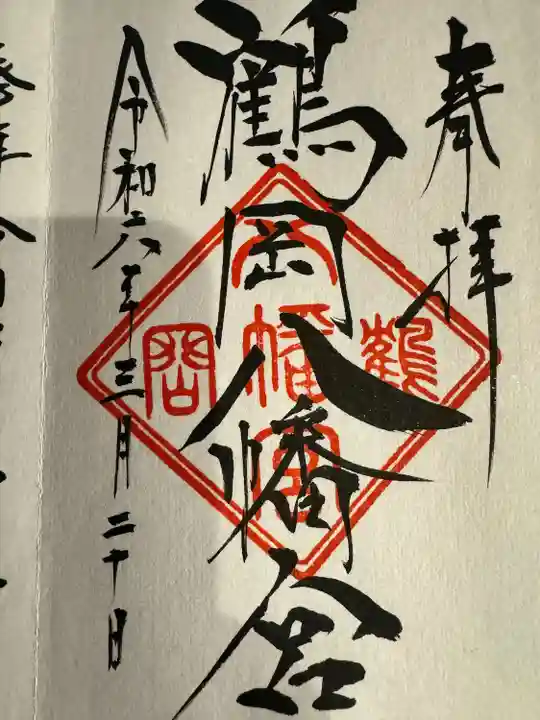 奉拝
鶴岡八幡宮
令和六年三月二十日
鶴
八幡宮
岡